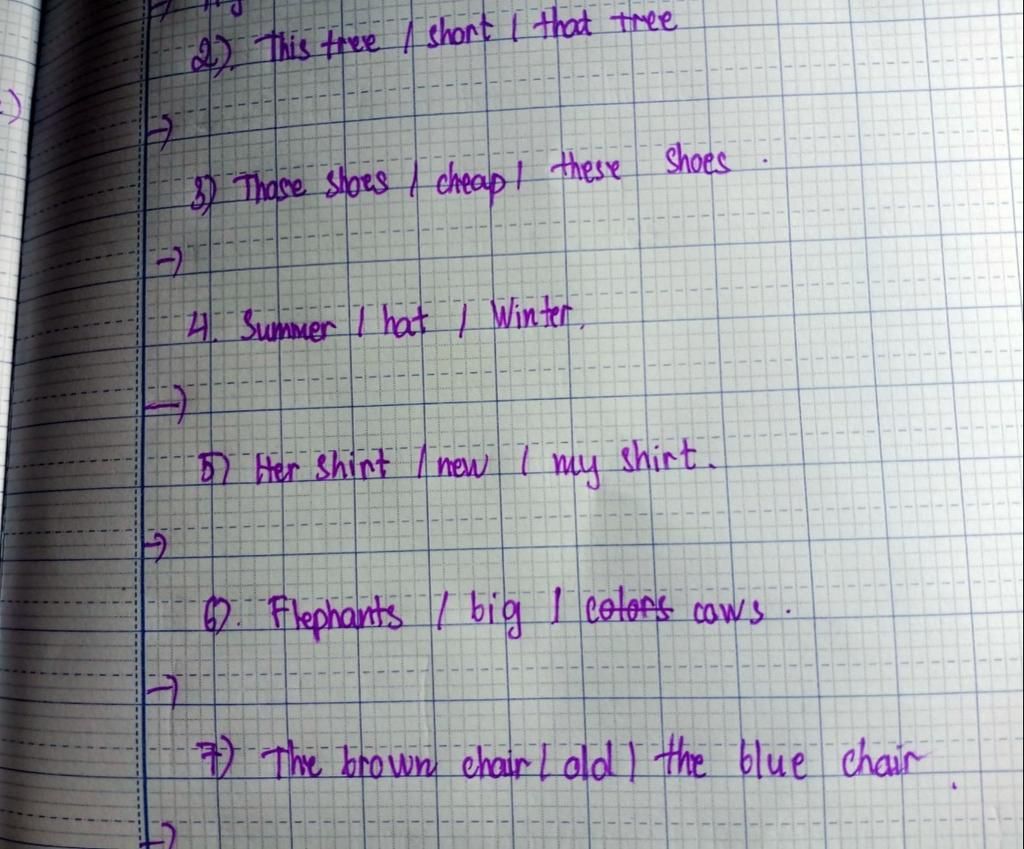 2). This tree / short / that tree
→
3) Those shoes / cheap / these shoes.
→
4. Summer / hot / Winter.
→
5) Her shirt / new / my shirt.
→
6). Elephants / big / colors cows.
→
7) The brown chair / old / the blue chair.
→